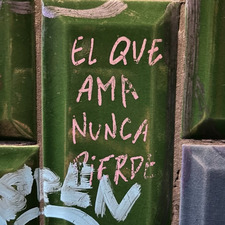 EL QUE
AMA
NUNCA
PIERDE